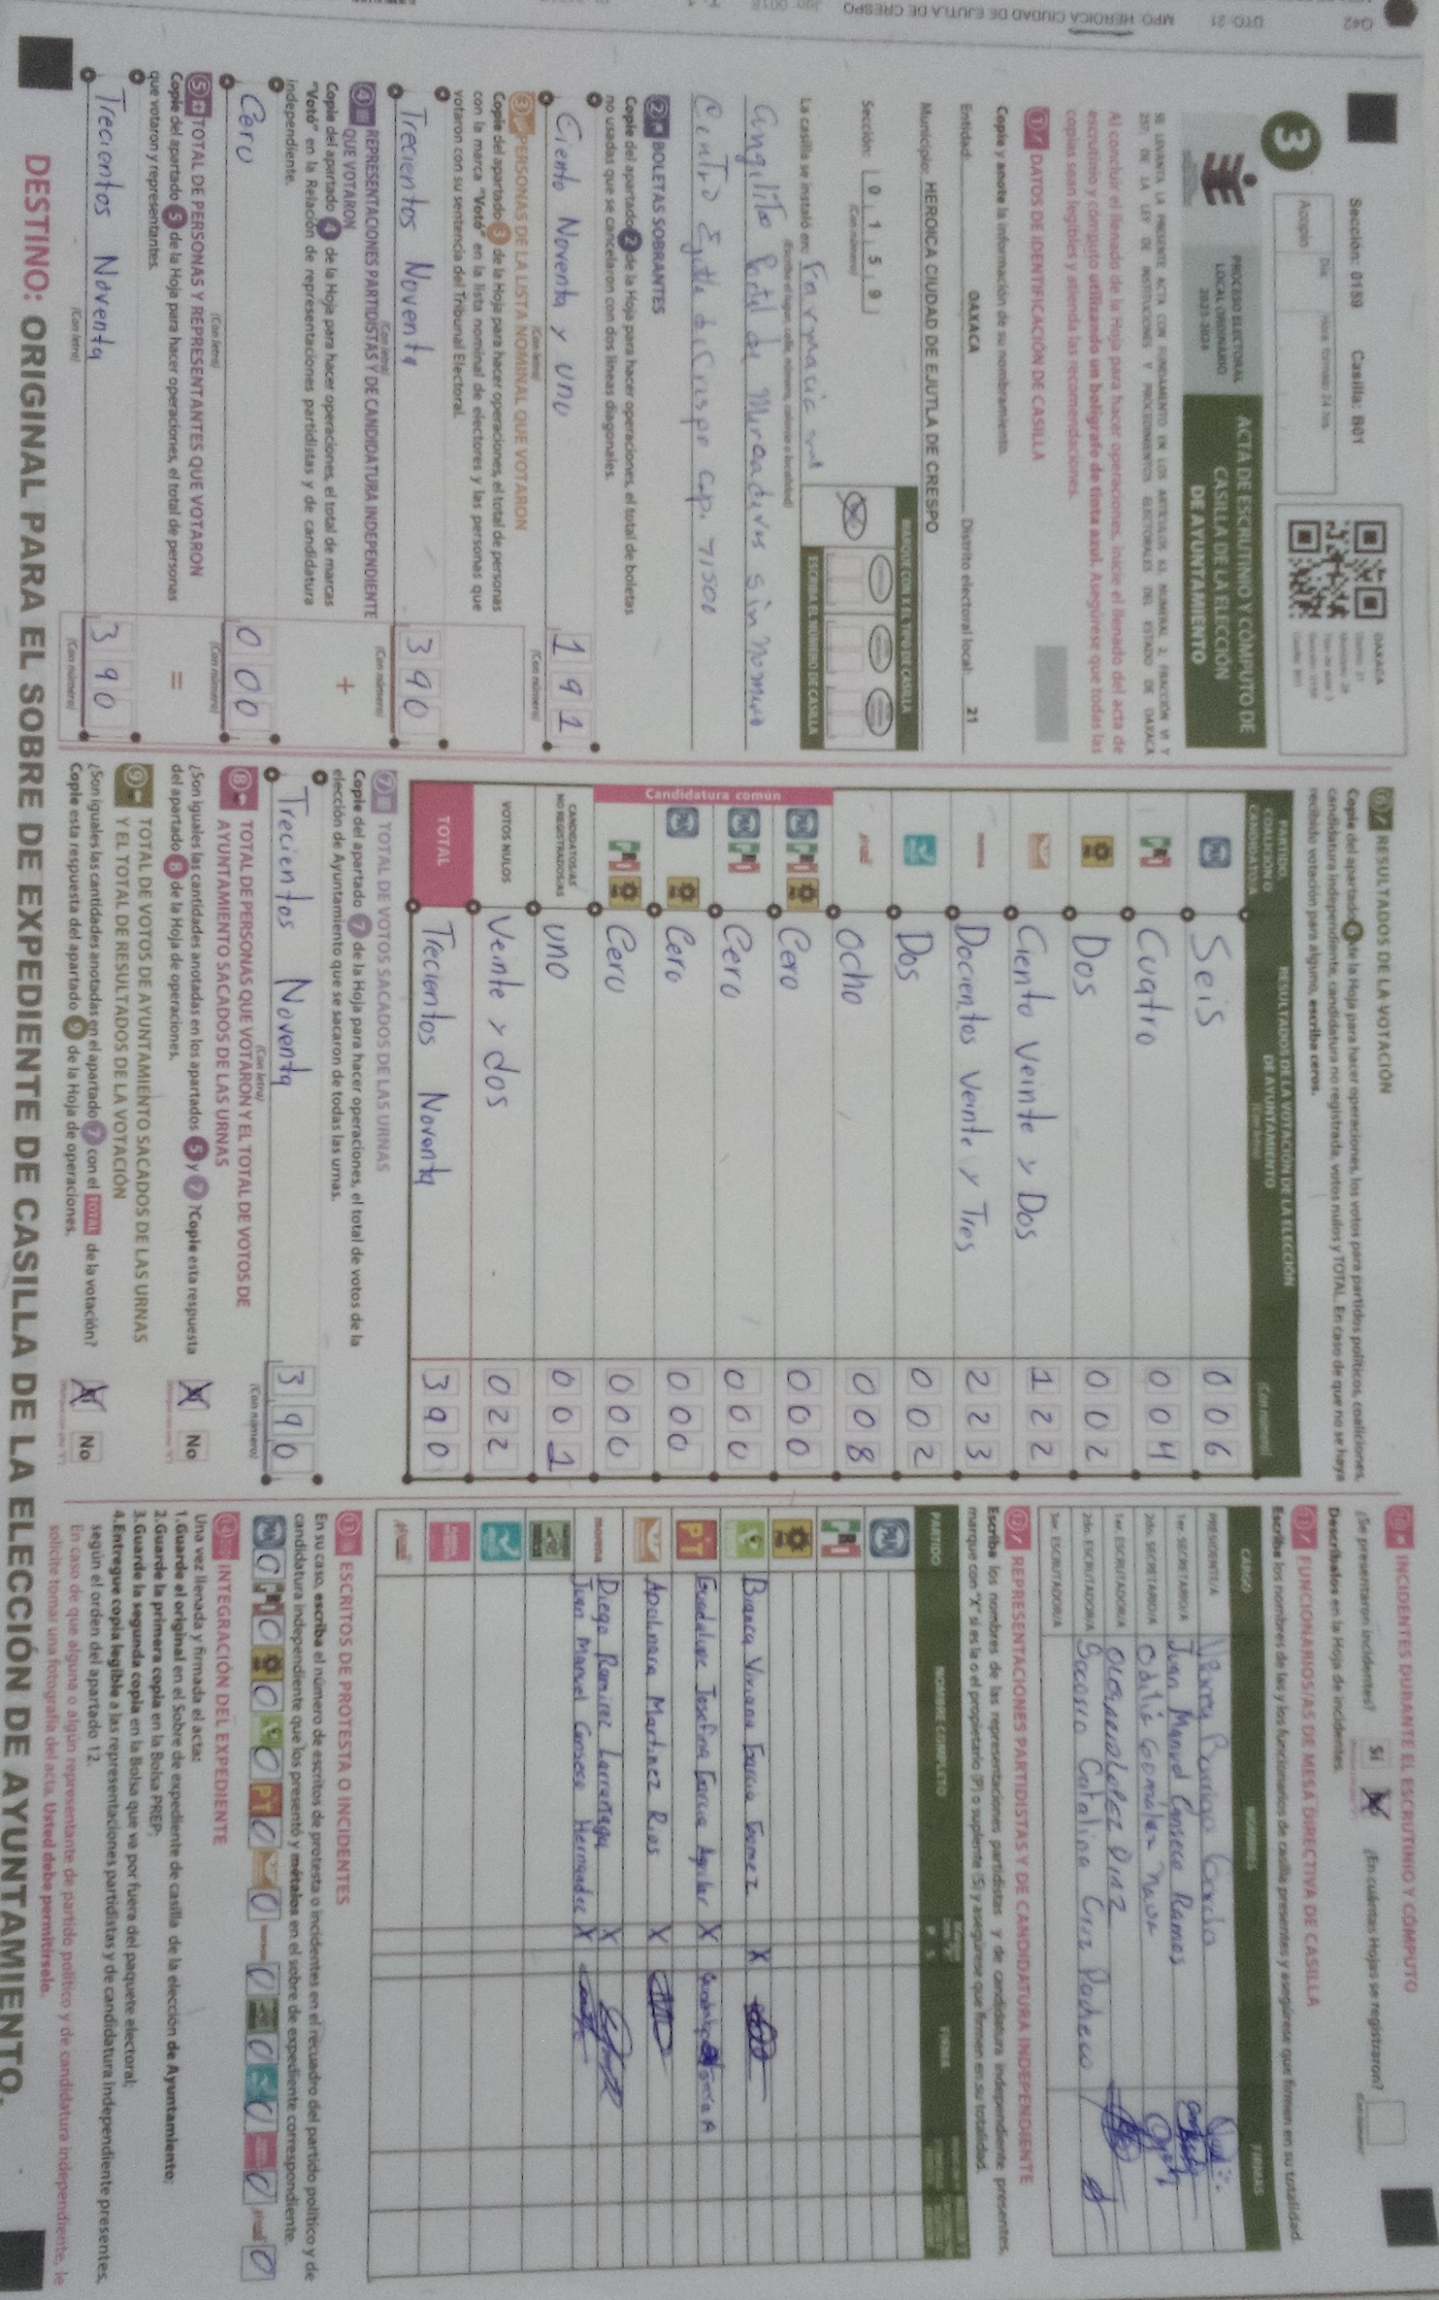 Sección: 0159 Casilla: B01
Acopio
Día
Hora formato 24 hrs.
3
PROCESO ELECTORAL
LOCAL ORDINARIO
2023-2024
ACTA DE ESCRUTINIO Y CÓMPUTO DE
CASILLA DE LA ELECCIÓN
DE AYUNTAMIENTO
OAXACA
SE LEVANTA LA PRESENTE ACTA CON FUNDAMENTO EN LOS ARTÍCULOS 63, NUMERAL 2, FRACCIÓN VI Y
257, DE LA LEY DE INSTITUCIONES Y PROCEDIMIENTOS ELECTORALES DEL ESTADO DE OAXACA
Al concluir el llenado de la Hoja para hacer operaciones, inicie el llenado del acta de
escrutinio y cómputo utilizando un bolígrafo de tinta azul. Asegúrese que todas las
copias sean legibles y atienda las recomendaciones.
1 DATOS DE IDENTIFICACIÓN DE CASILLA
Copie y anote la información de su nombramiento.
Entidad: OAXACA Distrito electoral local: 21
Municipio: HEROICA CIUDAD DE EJUTLA DE CRESPO
Sección: 0 1 5 9
(Con número)
MARQUE CON X EL TIPO DE CASILLA
ESCRIBA EL NÚMERO DE CASILLA
La casilla se instaló en:
(Escriba el lugar, calle, número, colonia o localidad)
Portal de sin
Centro Ejutla de Crespo C.p. 71500
2 BOLETAS SOBRANTES
Copie del apartado 2 de la Hoja para hacer operaciones, el total de boletas
no usadas que se cancelaron con dos líneas diagonales.
Ciento Noventa y uno 1 9 1
(Con letra) (Con número)
3 PERSONAS DE LA LISTA NOMINAL QUE VOTARON
Copie del apartado 3 de la Hoja para hacer operaciones, el total de personas
con la marca "Votó" en la lista nominal de electores y las personas que
votaron con su sentencia del Tribunal Electoral.
Trecientos Noventa 3 9 0
(Con letra) (Con número)
4 REPRESENTACIONES PARTIDISTAS Y DE CANDIDATURA INDEPENDIENTE
QUE VOTARON
+
Copie del apartado 4 de la Hoja para hacer operaciones, el total de marcas
"Votó" en la Relación de representaciones partidistas y de candidatura
independiente.
Cero 0 0 0
(Con letra) (Con número)
5 TOTAL DE PERSONAS Y REPRESENTANTES QUE VOTARON
=
Copie del apartado 5 de la Hoja para hacer operaciones, el total de personas
que votaron y representantes.
Trecientos Noventa 3 9 0
(Con letra) (Con número)
6 RESULTADOS DE LA VOTACIÓN
Copie del apartado 6 de la Hoja para hacer operaciones, los votos para partidos políticos, coaliciones,
candidatura independiente, candidatura no registrada, votos nulos y TOTAL. En caso de que no se haya
recibido votación para alguno, escriba ceros.
PARTIDO, COALICIÓN O CANDIDATURA
RESULTADOS DE LA VOTACIÓN DE LA ELECCIÓN
DE AYUNTAMIENTO
(Con letra) (Con número)
PAN Seis 0 0 6
PRI Cuatro 0 0 4
Dos 0 0 2
Ciento Veinte y Dos 1 2 2
morena Docientos Veinte y Tres 2 2 3
Dos 0 0 2
Ocho 0 0 8
Candidatura común
PAN PRI Cero 0 0 0
PAN PRI Cero 0 0 0
PAN Cero 0 0 0
PRI Cero 0 0 0
CANDIDATOS/AS NO REGISTRADOS/AS uno 0 0 1
VOTOS NULOS Veinte y dos 0 2 2
TOTAL Trecientos Noventa 3 9 0
7 TOTAL DE VOTOS SACADOS DE LAS URNAS
Copie del apartado 7 de la Hoja para hacer operaciones, el total de votos de la
elección de Ayuntamiento que se sacaron de todas las urnas.
Trecientos Noventa 3 9 0
(Con letra) (Con número)
8 TOTAL DE PERSONAS QUE VOTARON Y EL TOTAL DE VOTOS DE
AYUNTAMIENTO SACADOS DE LAS URNAS
¿Son iguales las cantidades anotadas en los apartados 5 y 7? Copie esta respuesta
del apartado 8 de la Hoja de operaciones.
No
9 TOTAL DE VOTOS DE AYUNTAMIENTO SACADOS DE LAS URNAS
Y EL TOTAL DE RESULTADOS DE LA VOTACIÓN
¿Son iguales las cantidades anotadas en el apartado 7 con el TOTAL de la votación?
Copie esta respuesta del apartado 9 de la Hoja de operaciones.
No
10 INCIDENTES DURANTE EL ESCRUTINIO Y CÓMPUTO
¿Se presentaron incidentes? Sí ¿En cuántas Hojas se registraron?
Descríbalos en la Hoja de incidentes.
11 FUNCIONARIOS/AS DE MESA DIRECTIVA DE CASILLA
Escriba los nombres de las y los funcionarios de casilla presentes y asegúrese que firmen en su totalidad.
CARGO NOMBRES FIRMAS
PRESIDENTE/A
1er. SECRETARIO/A Juan Manuel Canseco Ramos
2do. SECRETARIO/A
1er. ESCRUTADOR/A
2do. ESCRUTADOR/A Socorro Catalina Cruz Pacheco
3er. ESCRUTADOR/A
12 REPRESENTACIONES PARTIDISTAS Y DE CANDIDATURA INDEPENDIENTE
Escriba los nombres de las representaciones partidistas y de candidatura independiente presentes,
marque con "X" si es la o el propietario (P) o suplente (S) y asegúrese que firmen en su totalidad.
PARTIDO NOMBRE COMPLETO P S FIRMA
PAN
PRI
Bianca Viviana Garcia Gomez X
PT Guadalupe Josefina Garcia Aguilar X
Apolinara Martinez Rios X
morena Diego Ramirez Larrañaga X
Juan Manuel Canseco Hernandez X
13 ESCRITOS DE PROTESTA O INCIDENTES
En su caso, escriba el número de escritos de protesta o incidentes en el recuadro del partido político y de
candidatura independiente que los presentó y métalos en el sobre de expediente correspondiente.
PAN 0 PRI 0 0 0 PT 0 0 0 0 0 0 0
14 INTEGRACIÓN DEL EXPEDIENTE
Una vez llenada y firmada el acta:
1.Guarde el original en el Sobre de expediente de casilla de la elección de Ayuntamiento;
2.Guarde la primera copia en la Bolsa PREP;
3.Guarde la segunda copia en la Bolsa que va por fuera del paquete electoral;
4.Entregue copia legible a las representaciones partidistas y de candidatura independiente presentes,
según el orden del apartado 12.
En caso de que alguna o algún representante de partido político y de candidatura independiente, le
solicite tomar una fotografía del acta, Usted debe permitírselo.
DESTINO: ORIGINAL PARA EL SOBRE DE EXPEDIENTE DE CASILLA DE LA ELECCIÓN DE AYUNTAMIENTO.